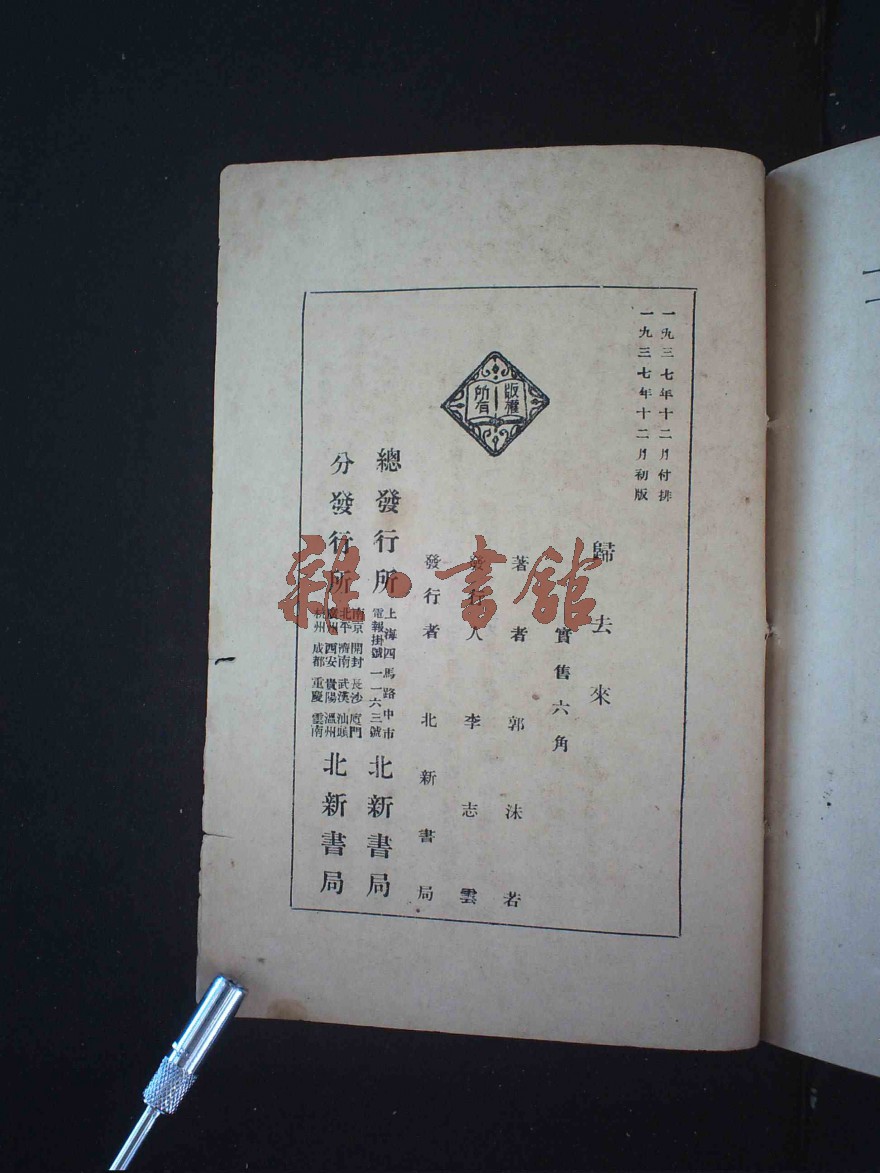 一九三七年十二月付排
一九三七年十二月初版
歸去來
實售六角
著者 郭沫若
發行人 李志雲
發行者 北新書局
版權
所有
總發行所 上海四馬路中市 電報掛號一一六三號 北新書局
分發行所 南京 開封 長沙 廈門 北平 濟南 武漢 汕頭 廣州 西安 貴陽 溫州 杭州 成都 重慶 雲南 北新書局
雜·書館